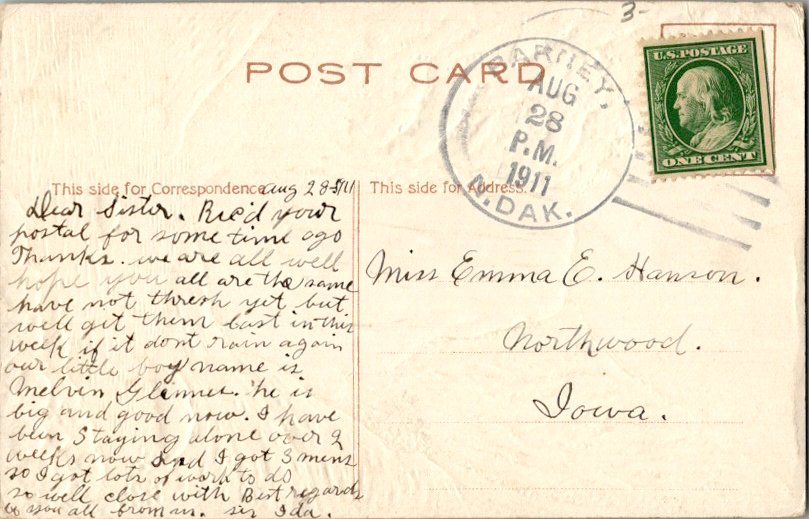 3-
POST CARD
BARNEY,
AUG
28
P.M.
1911
N.DAK.
U.S. POSTAGE
ONE CENT
This side for Correspondence
Aug 28-1911
This side for Address.
Dear Sister. Rec'd your
postal for some time ago
Thanks. we are all well
hope you all are the same
have not thresh yet but
well get them last in this
week if it dont rain again
our little boy name is
Melvin he is
big and good now. I have
been Staying alone over 2
weeks now and I got 3 mens
so I got lots of work to do
so well close with Best regards
to you all from us. sis Ida.
Miss Emma E. Hanson.
Northwood.
Iowa.